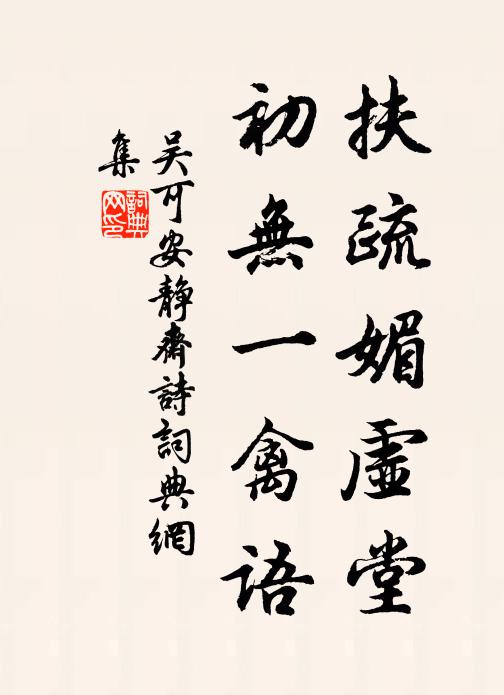 扶疏媚虛堂
初無一禽語
吴可安静齋詩詞典網
集
詞典網印